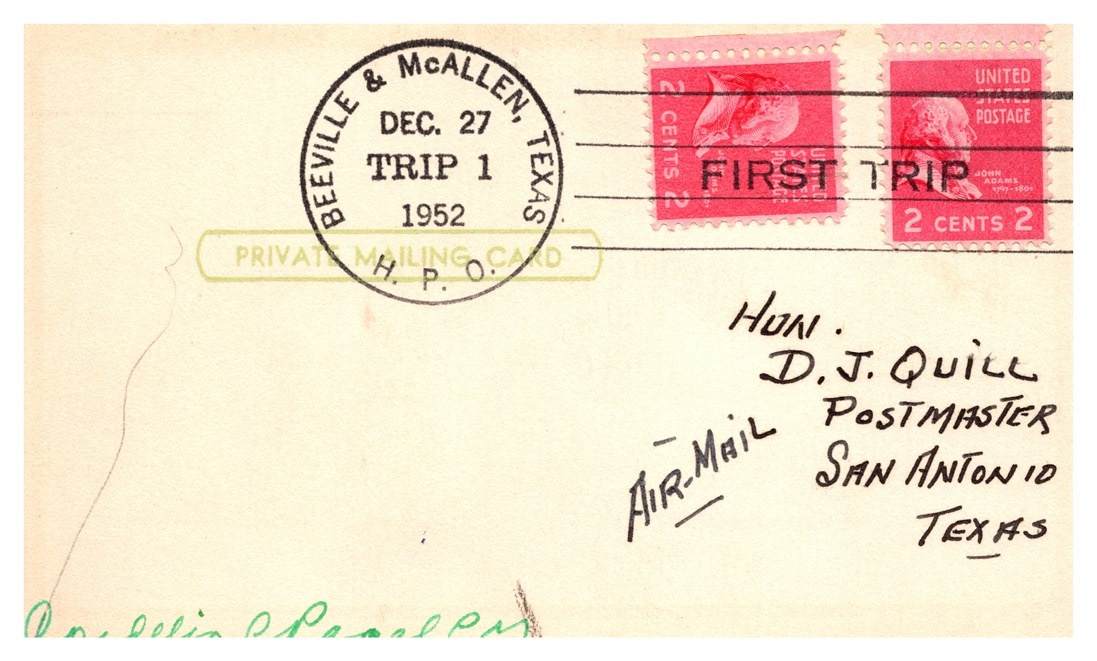 BEEVILLE & McALLEN, TEXAS
DEC. 27
TRIP 1
1952
H. P. O.
FIRST TRIP
2 CENTS 2
UNITED
STATES
POSTAGE
UNITED
STATES
POSTAGE
JOHN
ADAMS
1797-1801
2 CENTS 2
PRIVATE MAILING CARD
HON.
D. J. QUILL
POSTMASTER
SAN ANTONIO
TEXAS
AIR-MAIL